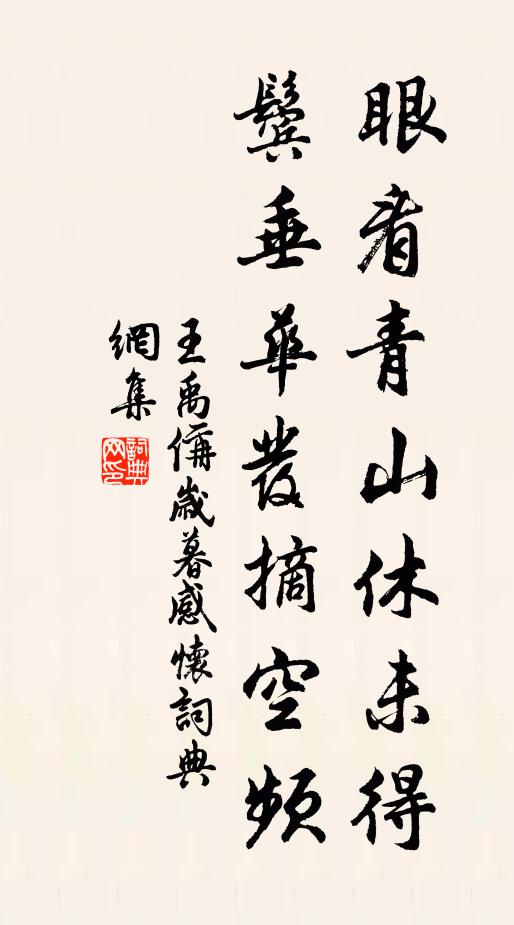 眼看青山休未得
鬢垂華發摘空頻
王禹偁歲暮感懷詞典
網集
詞典網印